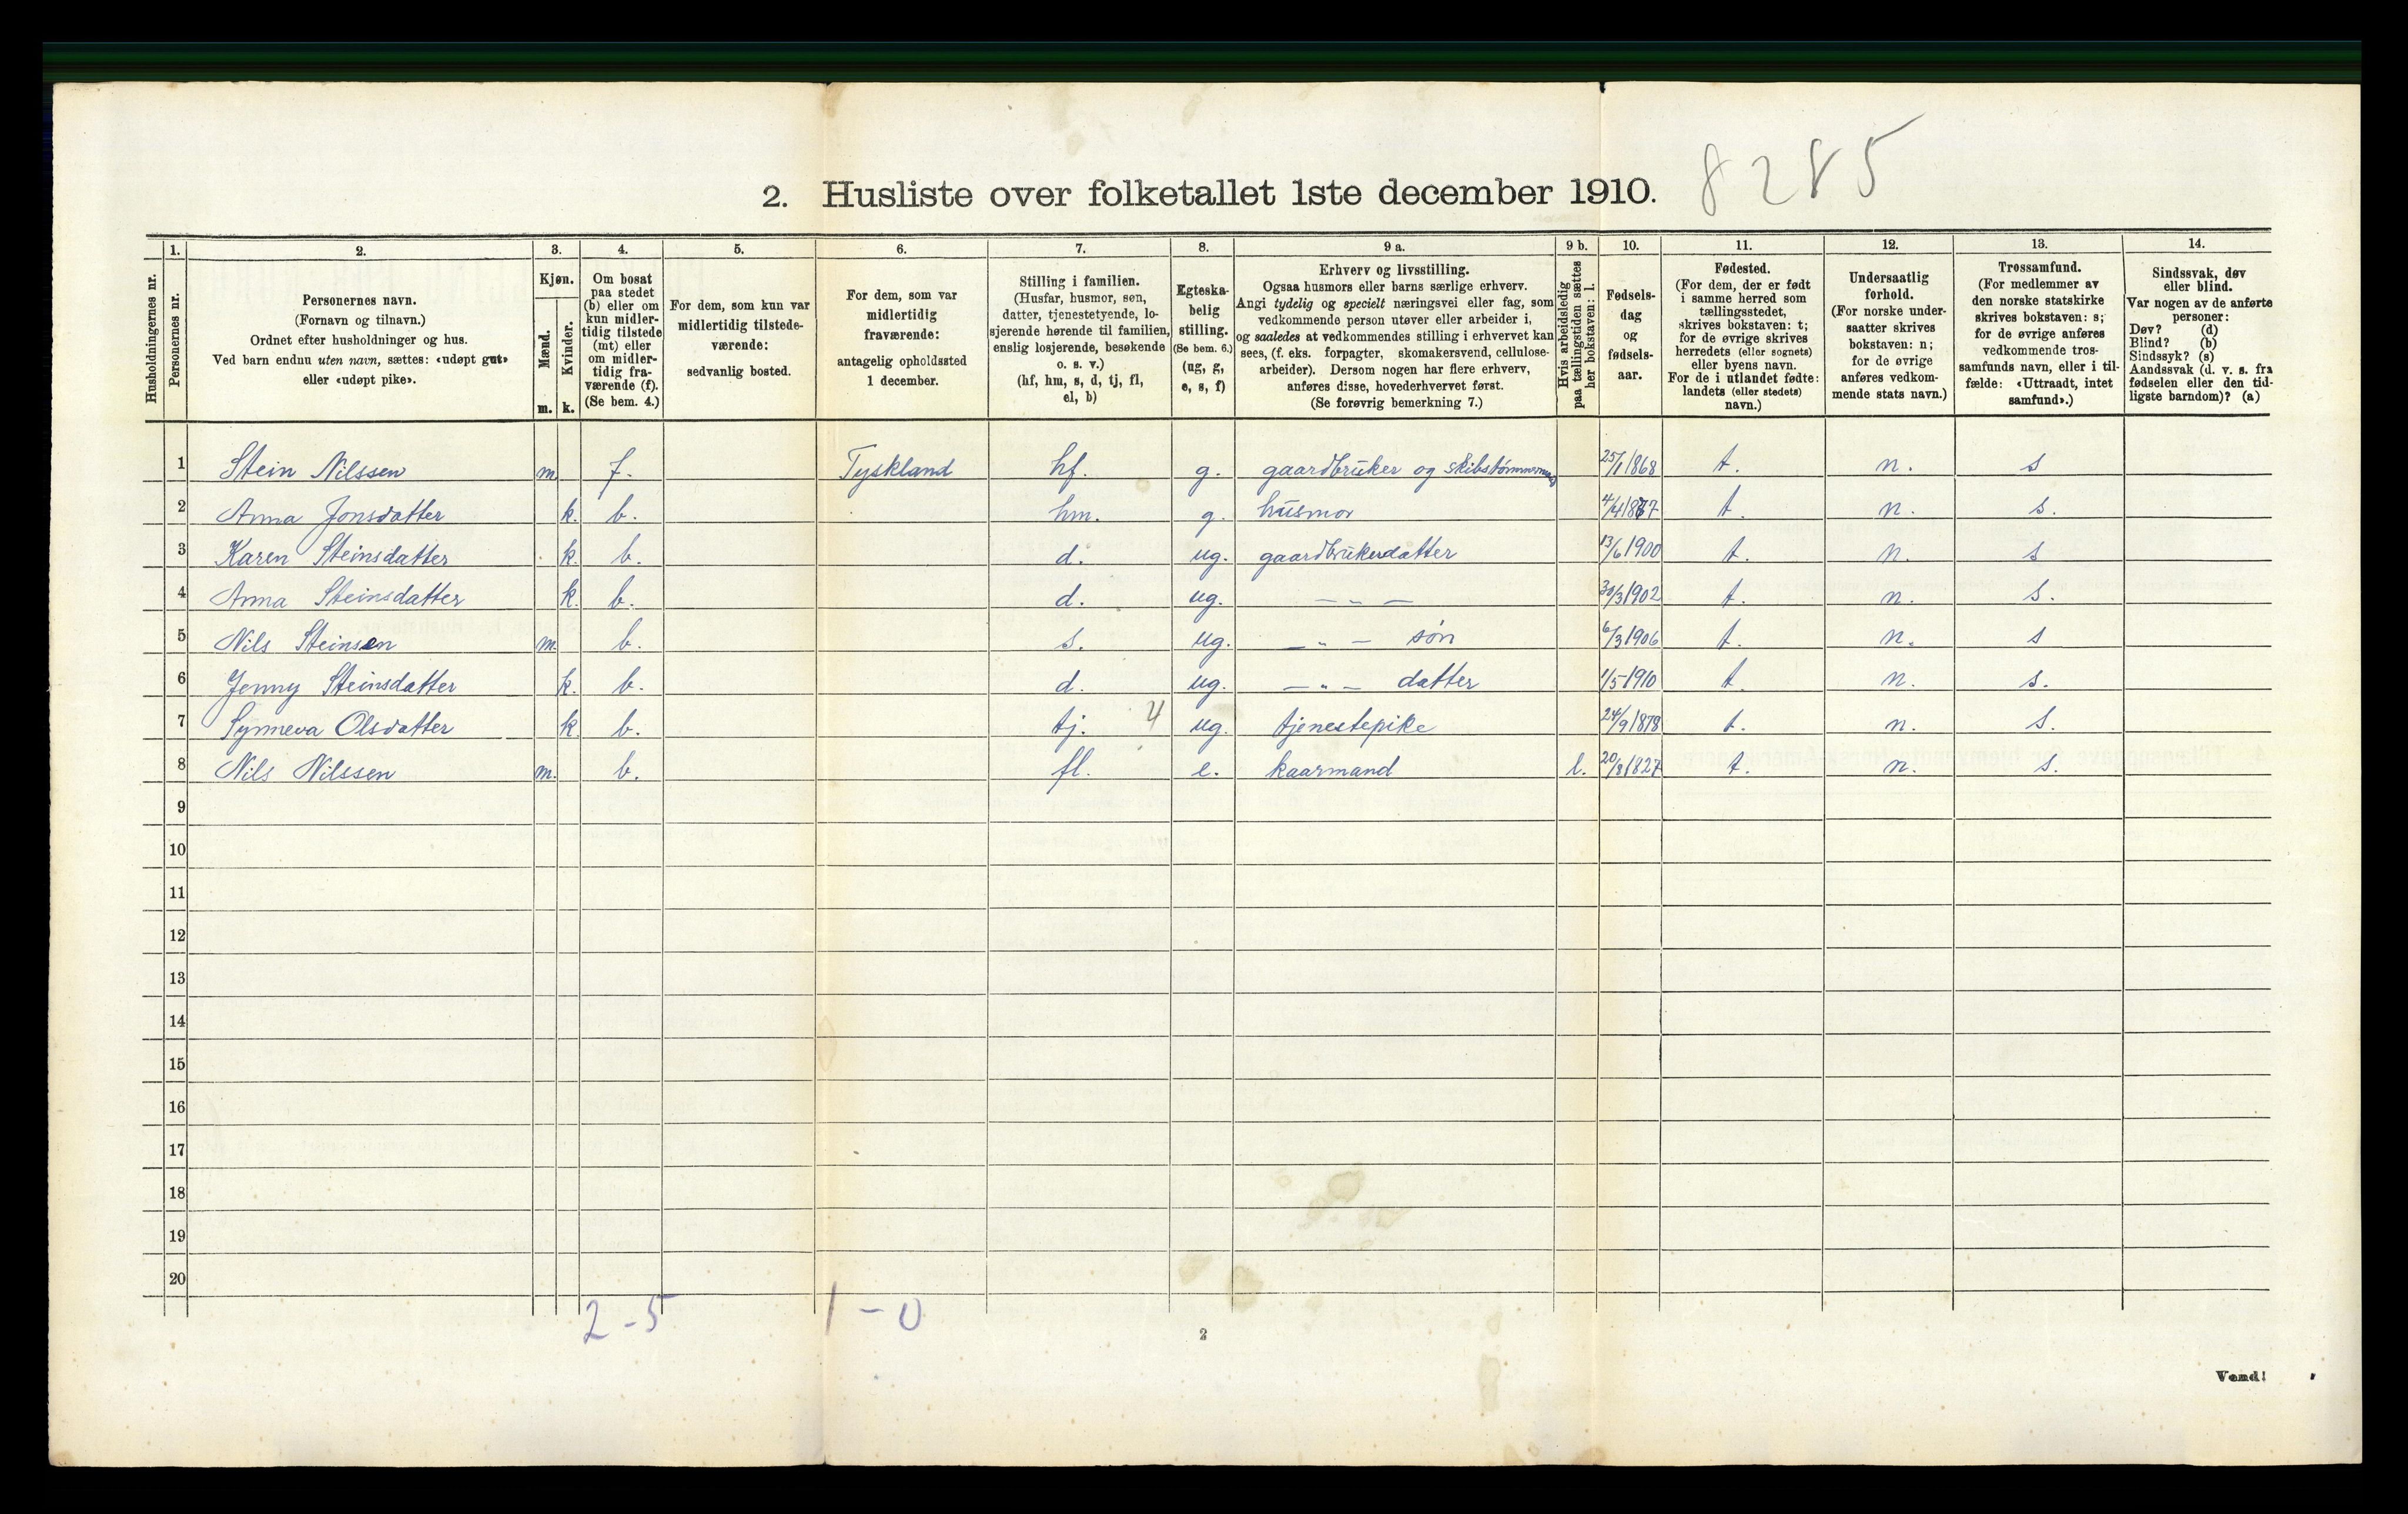 8285
2. Husliste over folketallet 1ste december 1910.
Husholdningernes nr.
1. Personernes nr.
2. Personernes navn. (Fornavn og tilnavn.) Ordnet efter husholdninger og hus. Ved barn endnu uten navn, sættes: «udøpt gut» eller «udøpt pike».
3. Kjøn. Mænd. m. Kvinder. k.
4. Om bosat paa stedet (b) eller om kun midler- tidig tilstede (mt) eller om midler- tidig fra- værende (f). (Se bem. 4.)
5. For dem, som kun var midlertidig tilstede- værende: sedvanlig bosted.
6. For dem, som var midlertidig fraværende: antagelig opholdssted 1 december.
7. Stilling i familien. (Husfar, husmor, søn, datter, tjenestetyende, lo- sjerende hørende til familien, enslig losjerende, besøkende o. s. v.) (hf, hm, s, d, tj, fl, el, b)
8. Egteska- belig stilling. (Se bem. 6.) (ug, g, e, s, f)
9 a. Erhverv og livsstilling. Ogsaa husmors eller barns særlige erhverv. Angi tydelig og specielt næringsvei eller fag, som vedkommende person utøver eller arbeider i, og saaledes at vedkommendes stilling i erhvervet kan sees, (f. eks. forpagter, skomakersvend, cellulose- arbeider). Dersom nogen har flere erhverv, anføres disse, hovederhvervet først. (Se forøvrig bemerkning 7.)
9 b. Hvis arbeidsledig paa tællingstiden sættes her bokstaven: l.
10. Fødsels- dag og fødsels- aar.
11. Fødested. (For dem, der er født i samme herred som tællingsstedet, skrives bokstaven: t; for de øvrige skrives herredets (eller sognets) eller byens navn. For de i utlandet fødte: landets (eller stedets) navn.)
12. Undersaatlig forhold. (For norske under- saatter skrives bokstaven: n; for de øvrige anføres vedkom- mende stats navn.)
13. Trossamfund. (For medlemmer av den norske statskirke skrives bokstaven: s; for de øvrige anføres vedkommende tros- samfunds navn, eller i til- fælde: «Uttraadt, intet samfund».)
14. Sindssvak, døv eller blind. Var nogen av de anførte personer: Døv? (d) Blind? (b) Sindssyk? (s) Aandssvak (d. v. s. fra fødselen eller den tid- ligste barndom)? (a)
1 Stein Nilssen m. f. Tyskland hf. g. gaardbruker og skibstømmermand 25/1 1868 t. n. s
2 Anna Jonsdatter k. b. hm. g. husmor 4/4 1867 t. n. s.
3 Karen Steinsdatter k. b. d. ug. gaardbrukerdatter 13/6 1900 t. n. s
4 Anna Steinsdatter k. b. d. ug. — „ — 30/3 1902 t. n. s.
5 Nils Steinsen m. b. s. ug. — „ — søn 6/3 1906 t. n. s
6 Jenny Steinsdatter k. b. d. ug. — „ — datter 1/5 1910 t. n. s.
7 Synneva Olsdatter k. b. tj. 4 ug. tjenestepike 24/9 1878 t. n. s.
8 Nils Nilssen m. b. fl. e. kaarmand l. 20/8 1827 t. n. s.
9
10
11
12
13
14
15
16
17
18
19
20
2 - 5 1 - 0
2
Vend!